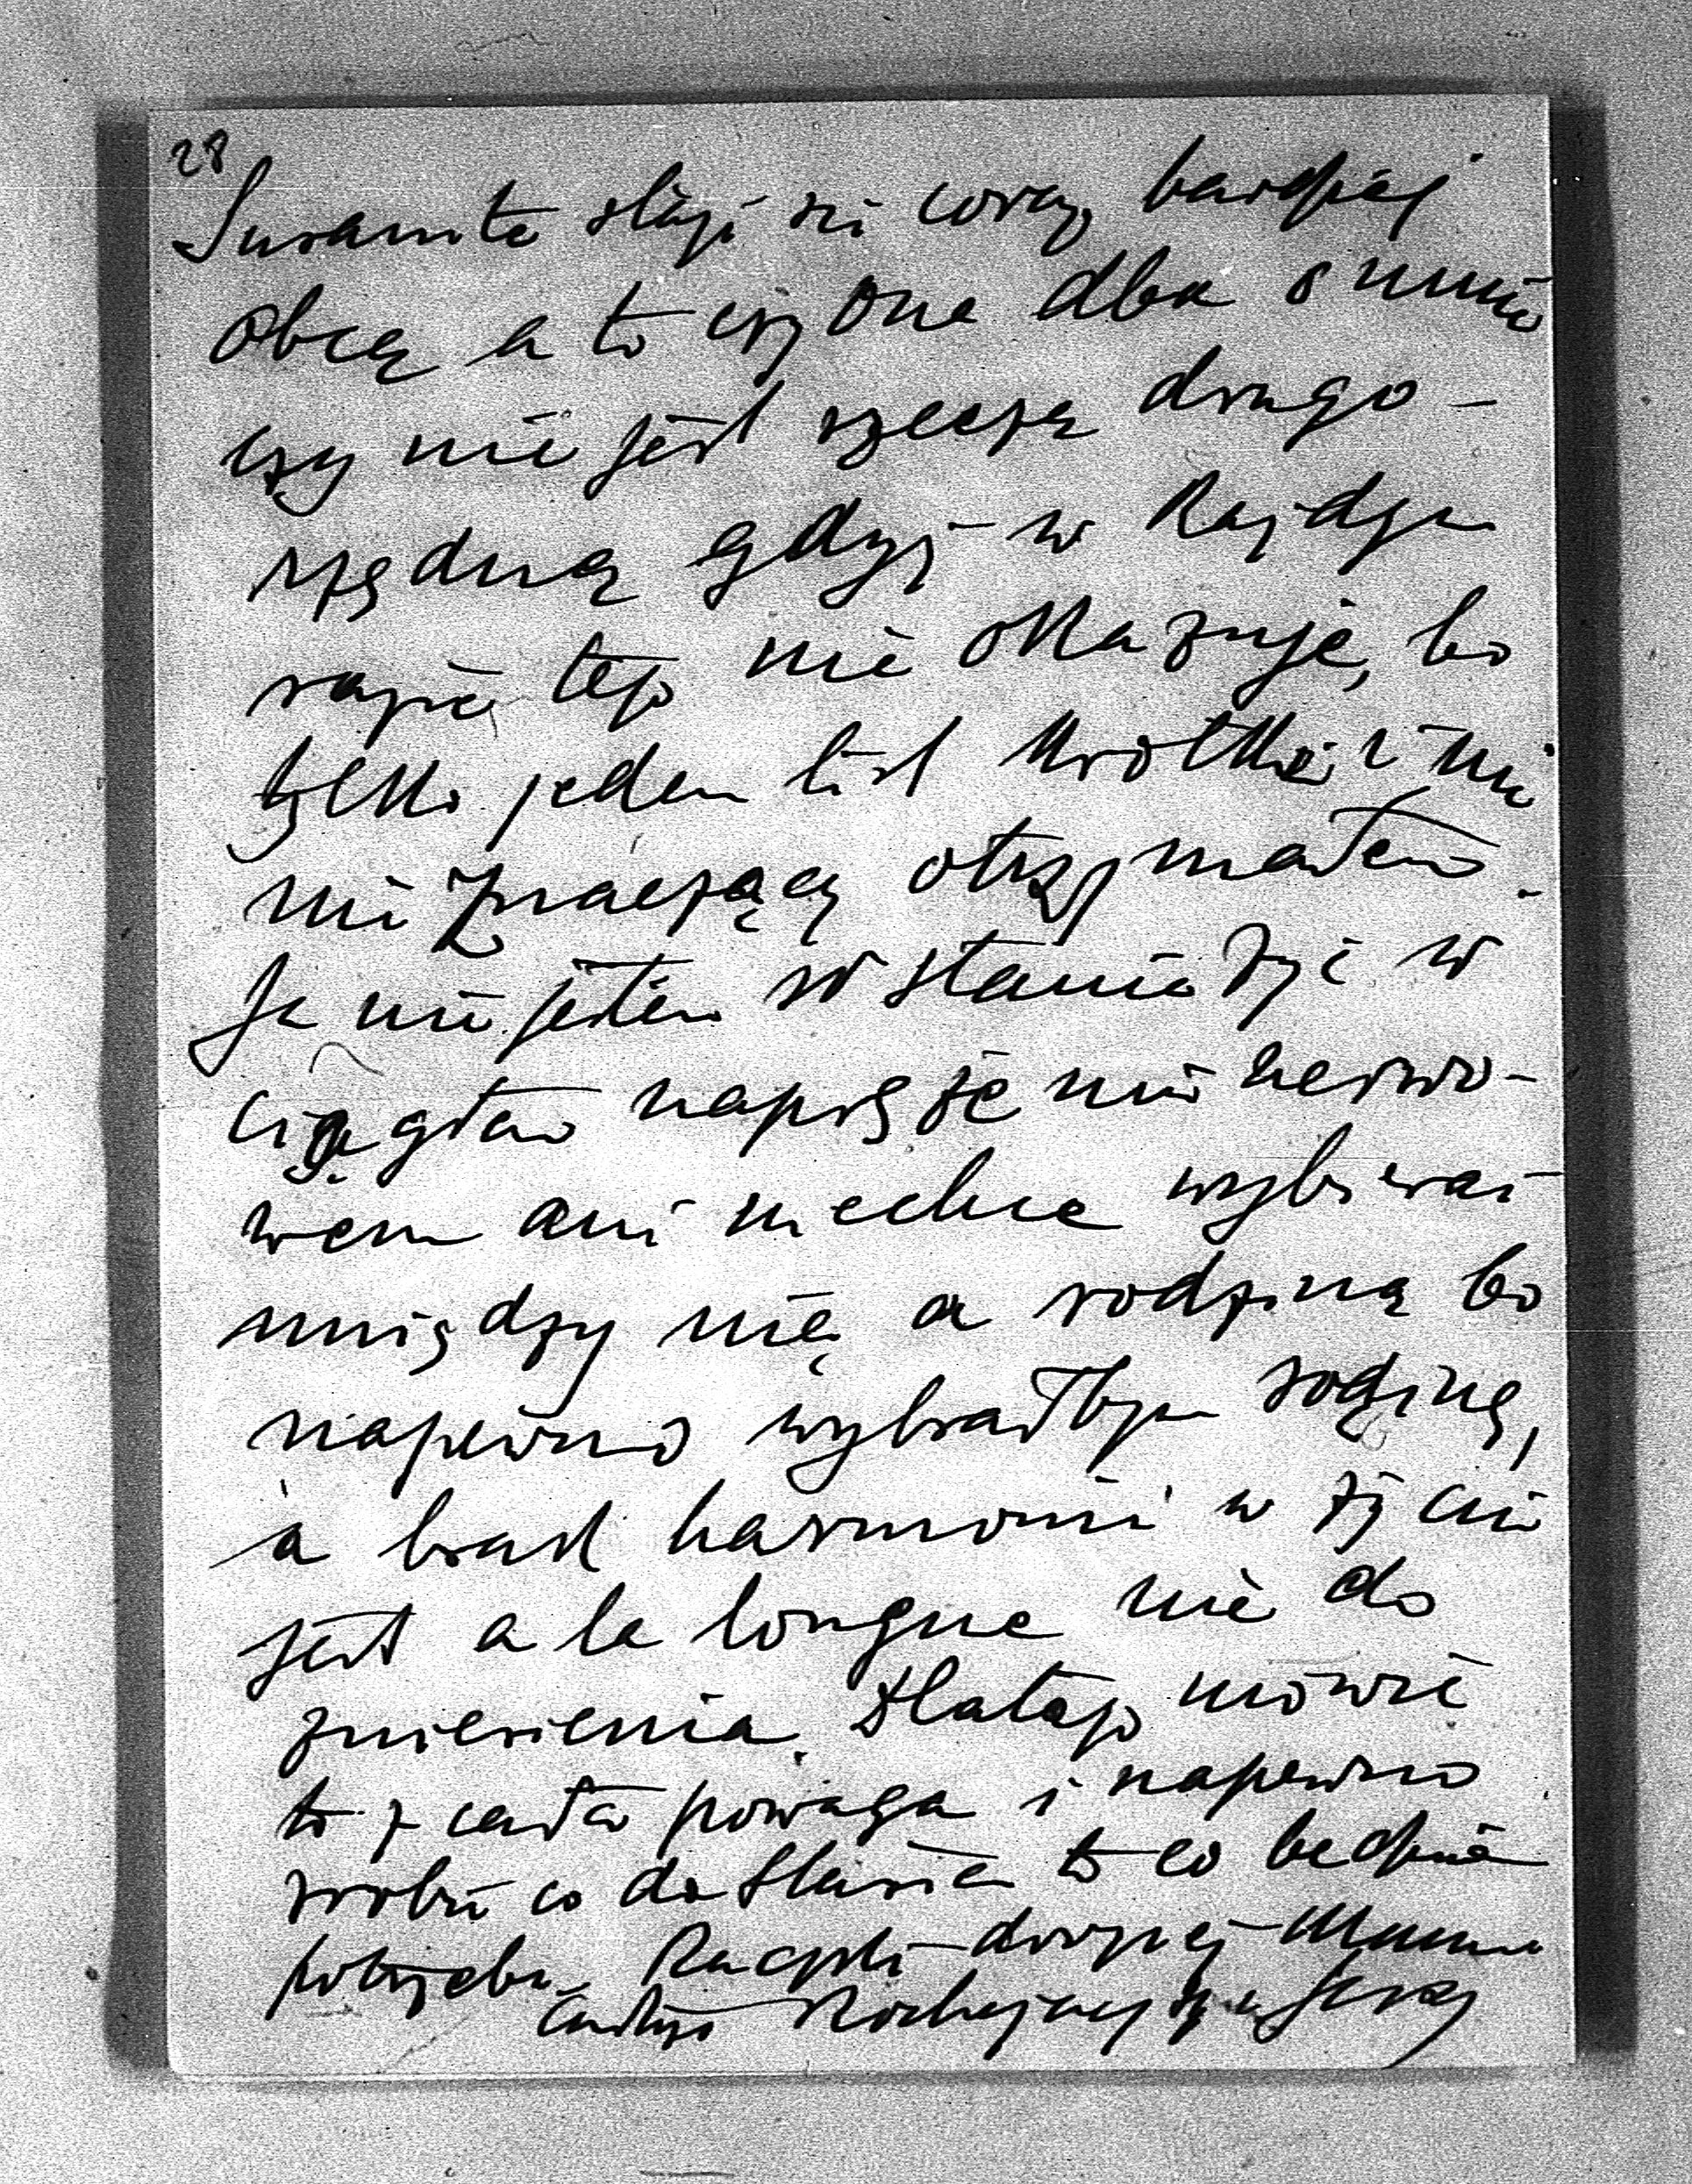 28
staje się coraz bardziej
obcą a to czy ona dba o mnie
czy nie jest rzeczą drugo-
rzędną gdyż w każdym
razie tego nie okazuje, bo
tylko jeden list krótki i nic
nie znaczący otrzymałem.
Ja nie jestem w stanie żyć w
ciągłem naprężeniu nerwo-
wem ani niechce wybierać
między nią a rodziną bo
napewno wybrałbym rodzinę,
a brak harmonii w życiu
jest a la longue nie do
zniesienia. Dlatego mówię
to z całą powagą i napewno
zrobię co do to co będzie
potrzeba. Rączki drogiej Mamy
całuję kochający syn Jerzy